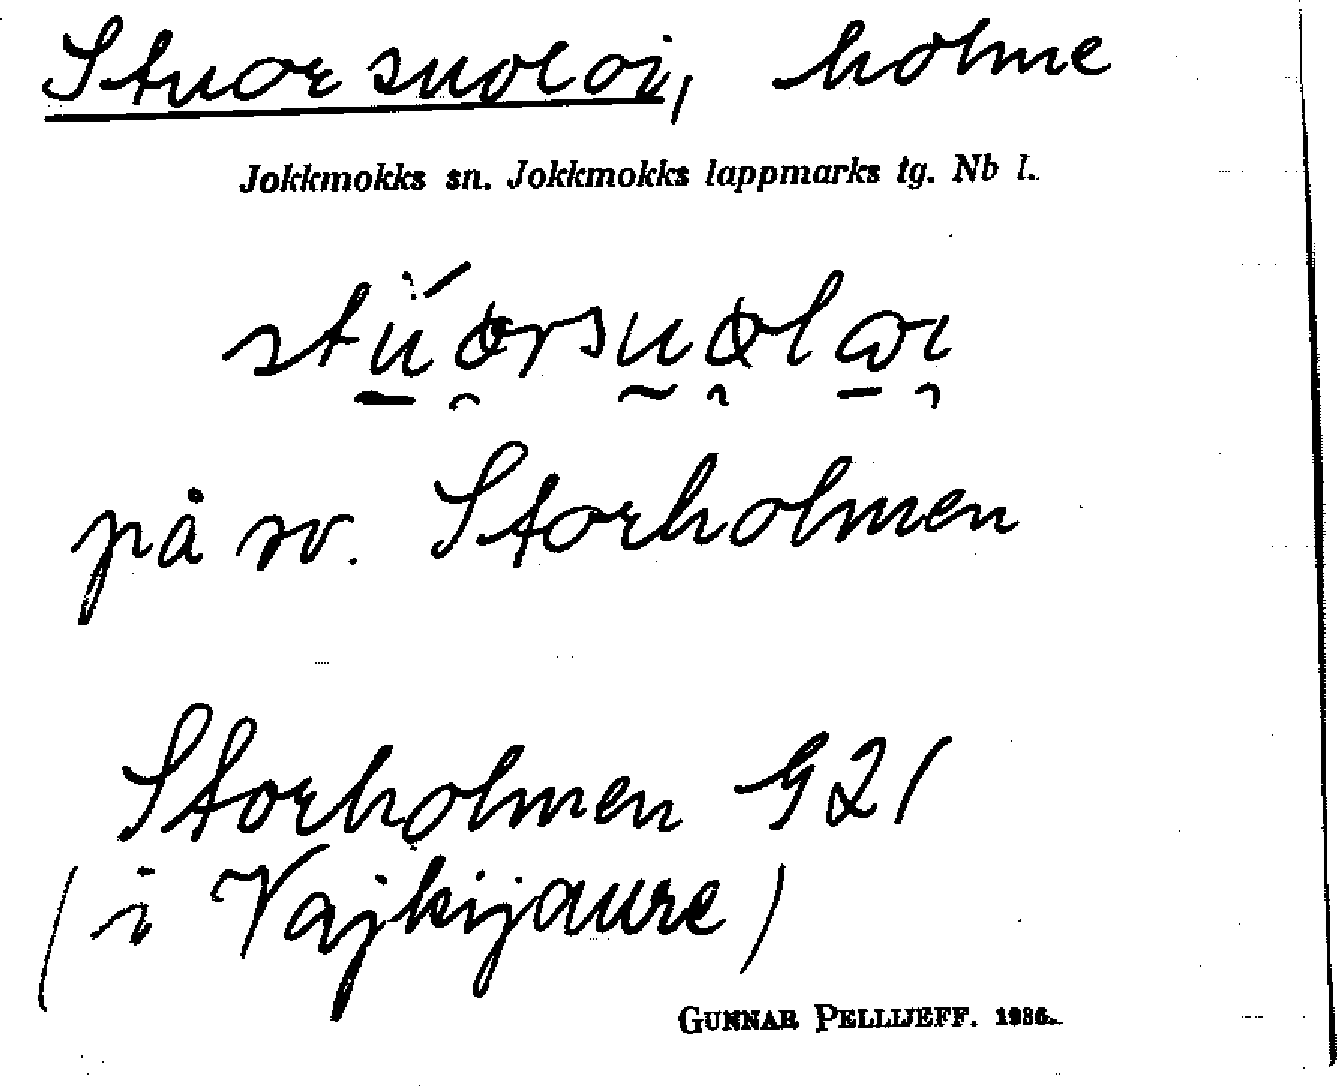 Stuorsuoloi, holme
Jokkmokks sn. Jokkmokks lappmarks tg. Nb l.
på sv. Storholmen
Storholmen 921
(i Vajkijaure)
GUNNAR PELLIJEFF. 1986.